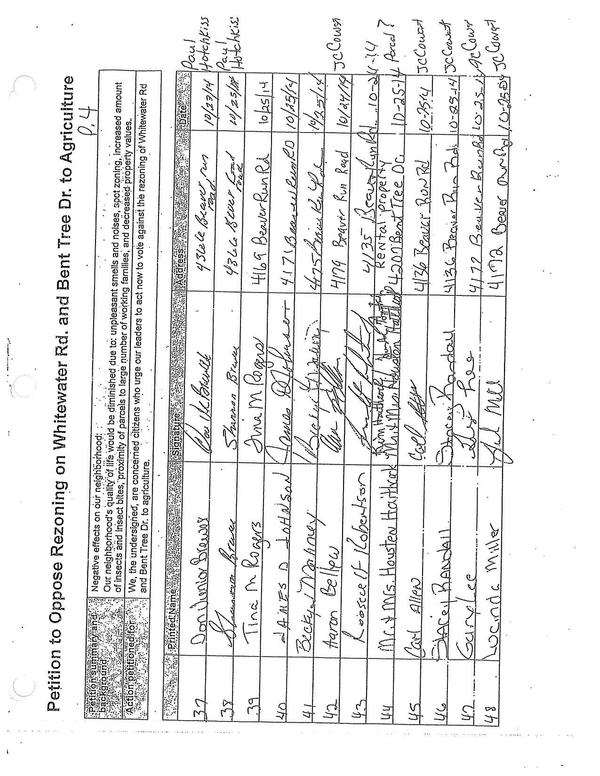 Petition to Oppose Rezoning on Whitewater Rd. and Bent Tree Dr. to Agriculture
P. 4
Petition summary and background
Negative effects on our neighborhood:
Our neighborhood's quality of life would be diminished due to: unpleasant smells and noises, spot zoning, increased amount
of insects and insect bites, proximity of parcels to large number of working families, and decreased property values.
Action petitioned for
We, the undersigned, are concerned citizens who urge our leaders to act now to vote against the rezoning of Whitewater Rd
and Bent Tree Dr. to agriculture.
Printed Name Signature Address Date
37 4366 Beaver run road 10/23/14 Paul Hotchkiss
38 Shannon 4366 road 10/23/14 Paul Hotchkiss
39 Tina M Rogers Tina M Rogers 4169 Beaver Run Rd 10/25/14
40 JAMES D JOHNSON James D Johnson 4171 10/25/14
41 Becky Mahoney 4175 10/25/14
42 Aaron Bellew 4179 Beaver Run Road 10/24/14 JC Cowart
43 Roosevelt Robertson 4135 Beaver Run Rd. 10-25-14
Rental property
44 Mr. & Mrs. Housten Hathcock 4207 Bent Tree Dr. 10-25-14 Parcel?
45 Carl Allen 4136 Beaver Run Rd 10-25-14 JC Cowart
46 Stacey RANDALL Stacey Randall 4136 Beaver Run Rd. 10-25-14 JC Cowart
47 Gary Lee 4172 Beaver Run Rd 10-25-14 JC Cowart
48 Lucinda Miller 4172 Beaver Run Rd JC Cowart